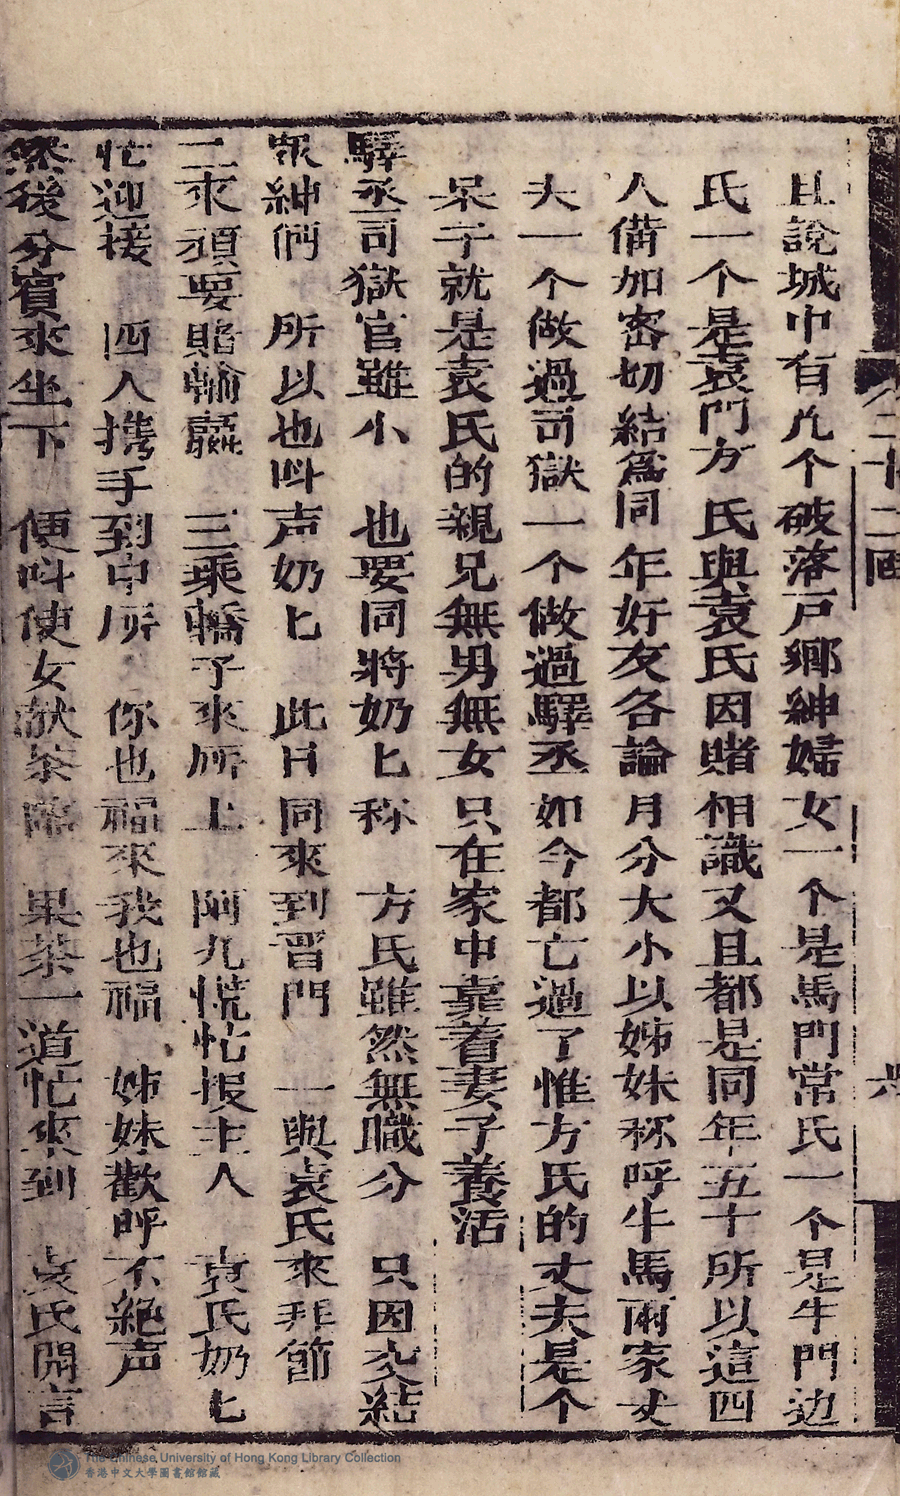 二十二囬
且說城中有几个破落戶鄉紳婦女一个是馬門常氏一个是牛門边
氏一个是袁門方氏與袁氏因賭相識又且都是同年五十所以這四
人俻加宻切結為同年好友各論月分大小以姊妹称呼牛馬兩家丈
夫一个做過司獄一个做過驛丞如今都亡過了惟方氏的丈夫是个
呆子就是袁氏的親兄無男無女只在家中靠着妻子養活
驛丞司獄官雖小　也要同將奶匕称　方氏雖然無職分　只因交結
衆紳們　所以也呌声奶匕　此日同來到晋門　一與袁氏來拜節
二來須要賭輸贏　三乘轎子來所上　阿九慌忙报主人　袁氏奶匕
忙迎接　四人携手到中所　你也福來我也福　姊妹歡呼不絕声
然後分賓來坐下　便呌使女献茶　果茶一道忙來到　袁氏開言
The Chinese University of Hong Kong Library Collection
香港中文大學圖書館館藏